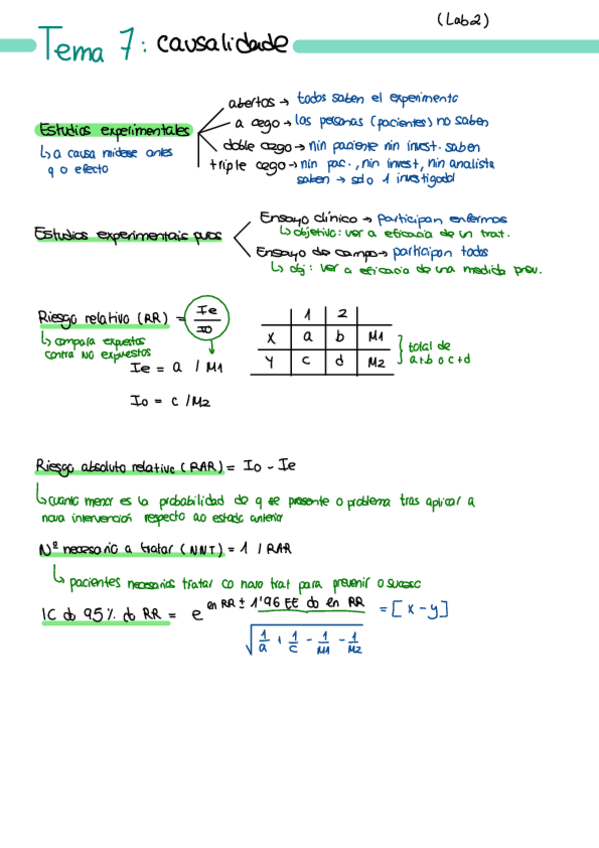 (Lab2)
Tema 7: causalidade
abertos → todos saben el experimento
Estudios experimentales
a cego → las personas (pacientes) no saben
↳ a causa mídese antes
q o efecto
doble cego → nin paciente nin invest. saben
triple cego → nin pac., nin invest, nin analista
saben → solo 1 investigador
Ensayo clínico → participan enfermos
↳ objetivo: ver a eficacia de un trat.
Estudios experimentais puros
Ensayo de campo → participan todos
↳ obj: ver a eficacia de una medida prev.
Riesgo relativo (RR) = Ie / Io
↳ compara expuestos
contra NO expuestos
Ie = a / M1
Io = c / M2
1 2
X a b M1
Y c d M2
total de
a+b o c+d
Riesgo absoluto relativo (RAR) = Io - Ie
↳ cuanto menor es la probabilidad de q se presente o problema tras aplicar a
nova intervención respecto ao estado anterior
Nº necesario a tratar (NNT) = 1 / RAR
↳ pacientes necesarios tratar co novo trat para prevenir o suceso
IC do 95%. do RR = e^(en RR ± 1'96 EE do en RR) = [x - y]
√(1/a + 1/c - 1/M1 - 1/M2)